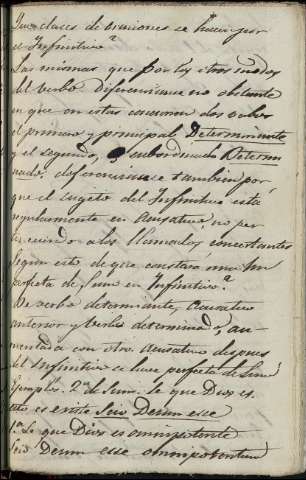 Que clases de oraciones se hacen por
el Infinitivo?
Las mismas que por los otros modos
del verbo Diferencianse no obstante
en que en estas concurren dos verbos
el primero y principal Determinante
y el segundo, subordinado Determi
nado; diferencianse tambien por
que el sugeto del Infinitivo está
regularmente en acusativo, no per
teneciendo a los llamados concertantes
Segun esto de que constará una im
perfecta de Sum en Infinitivo?
De verbo determinante, acusativo
anterior y verbo determinado, au-
mentada con otro acusativo despues
del Infinitivo se hace perfecta de Sum
Ejemplos. 2ª de Sum. Se que Dios es
esto es existe Scio Deum esse
1ª Se que Dios es omnipotente
Scio Deum esse omnipotentem